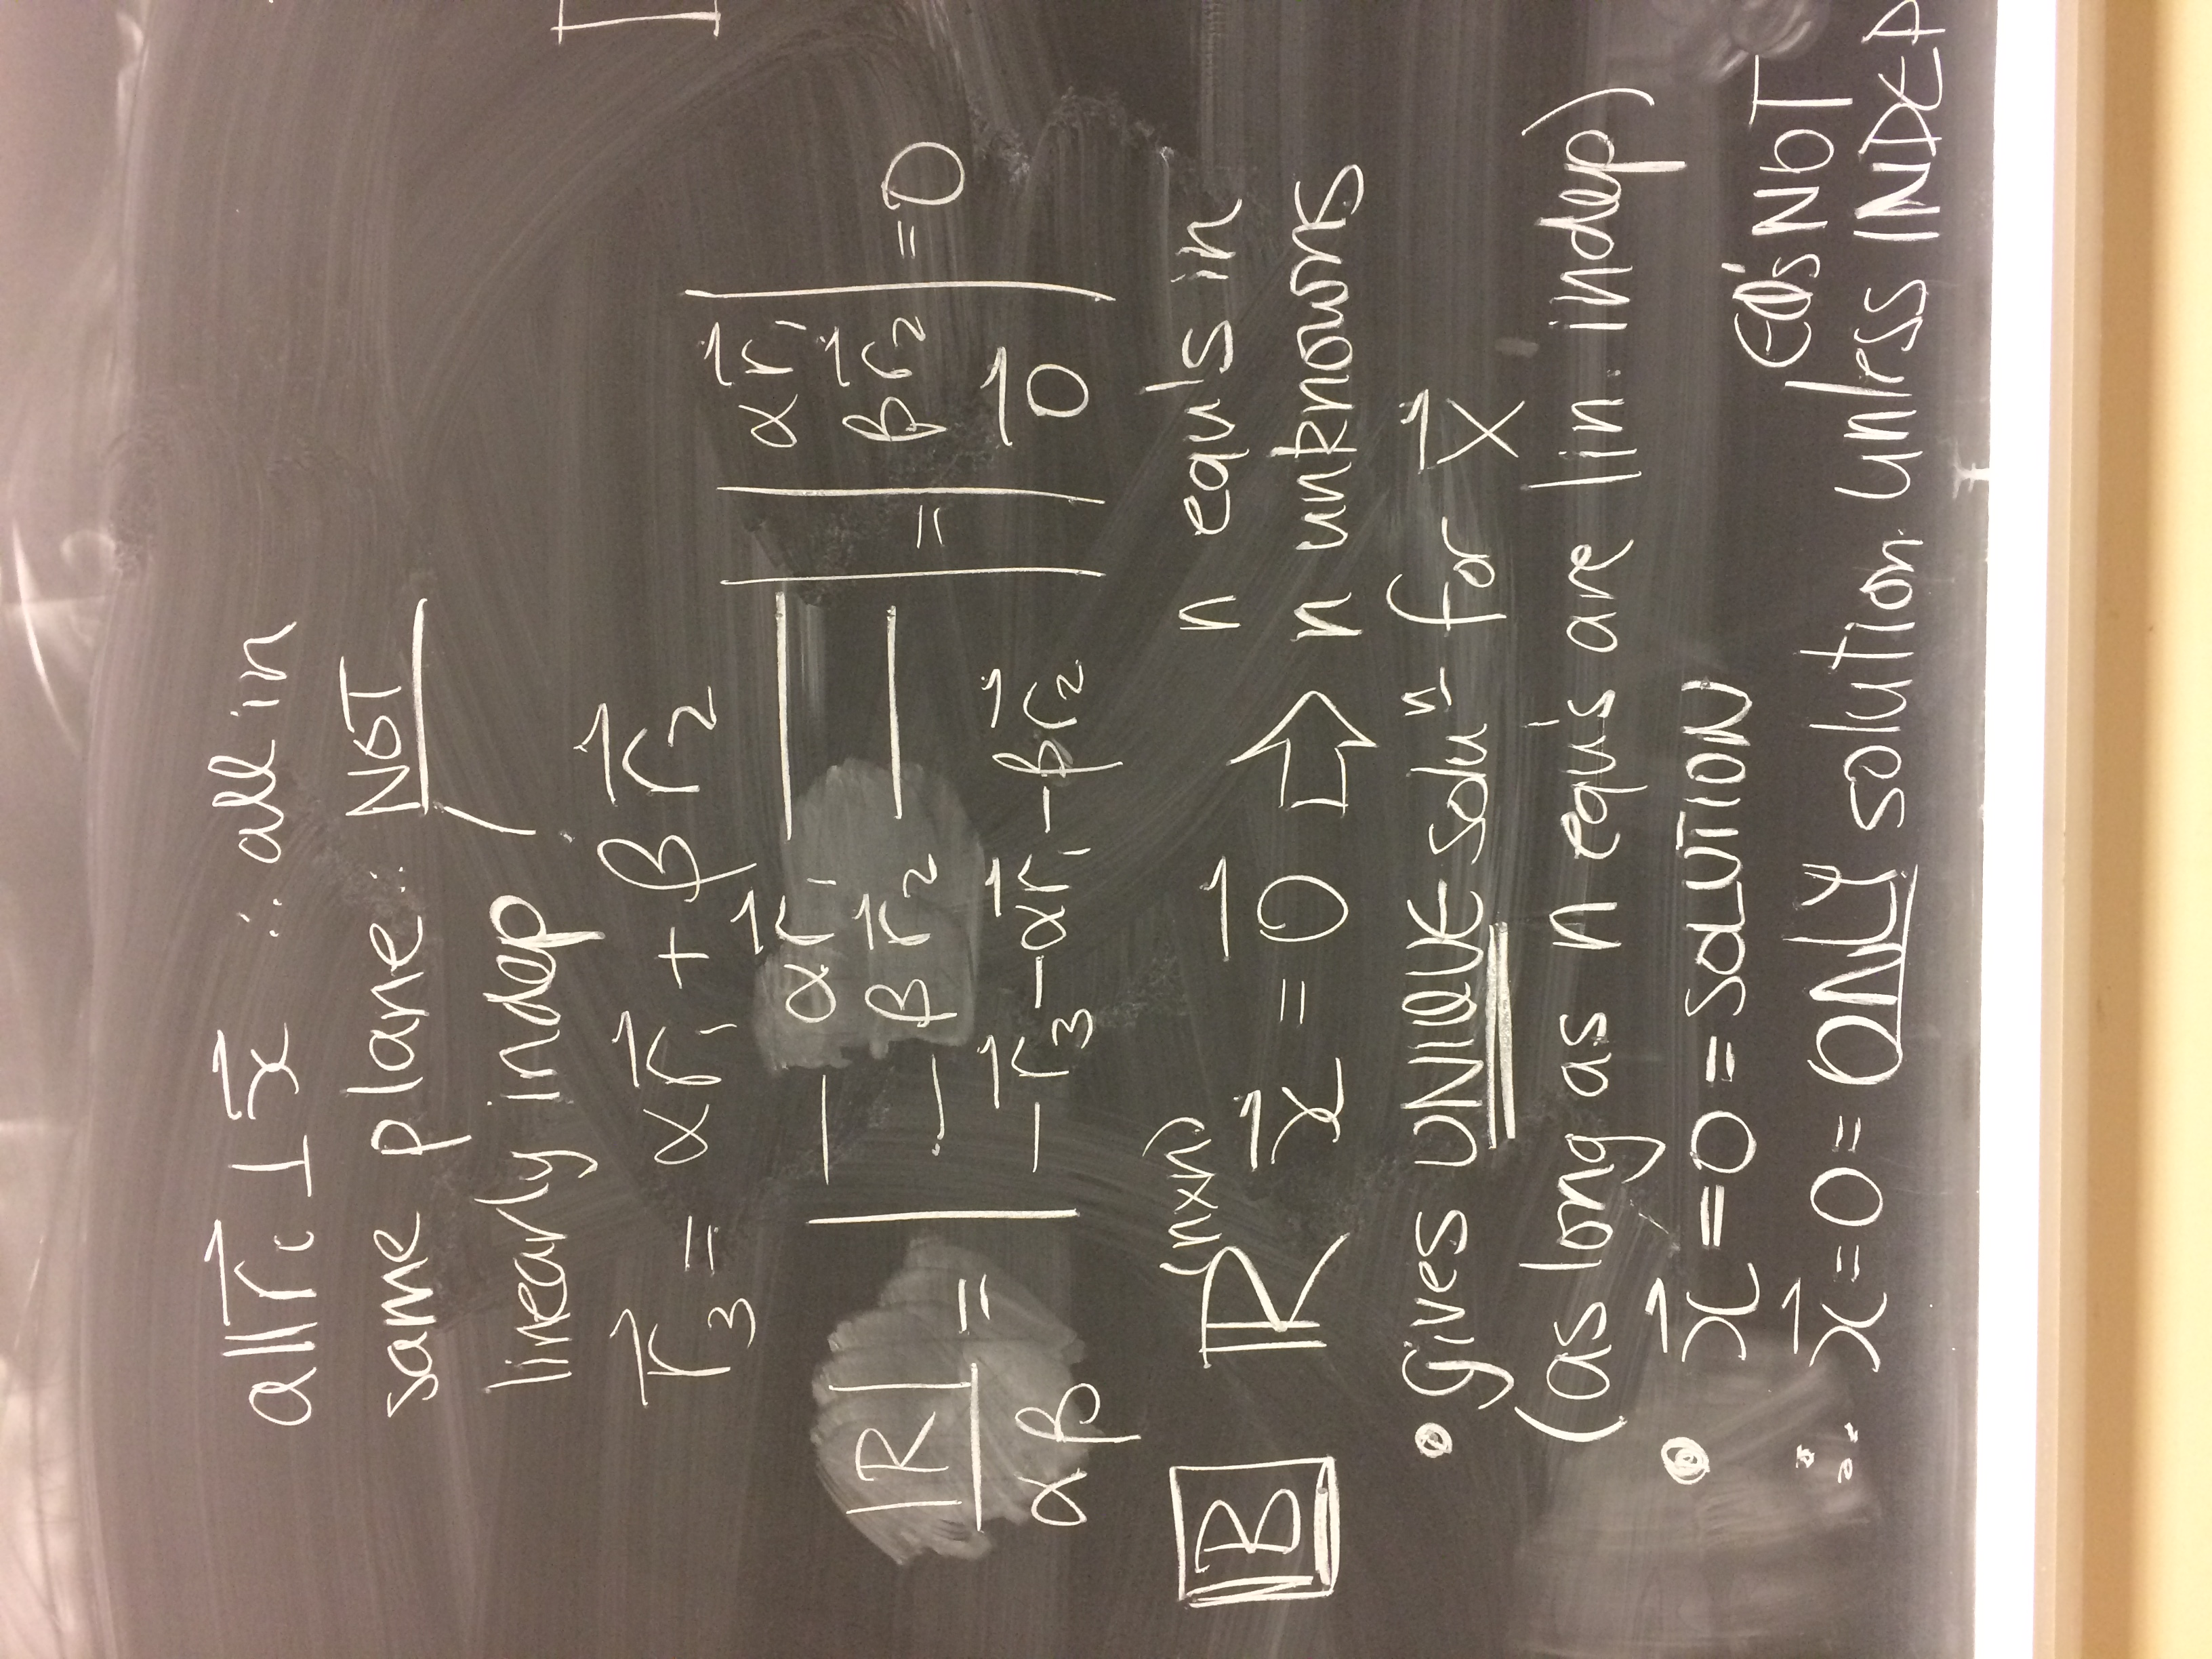 all r⃗ᵢ ⊥ x⃗ ∴ all in
same plane ∴ NOT
linearly indep
r⃗₃ = αr⃗₁ + βr⃗₂
|R| / αβ = | — αr⃗₁ — ; — βr⃗₂ — ; — r⃗₃ - αr⃗₁ - βr⃗₂ | = | αr⃗₁ ; βr⃗₂ ; 0⃗ | = 0
B ℝ⁽ⁿˣⁿ⁾ x⃗ = 0⃗ ⇒ n equ's in
n unknowns
• gives UNIQUE soluⁿ for x⃗
(as long as n equ's are lin. indep)
• x⃗ = 0 = SOLUTION
EQ's NOT
∴ x⃗ = 0 = ONLY solution unless INDEP